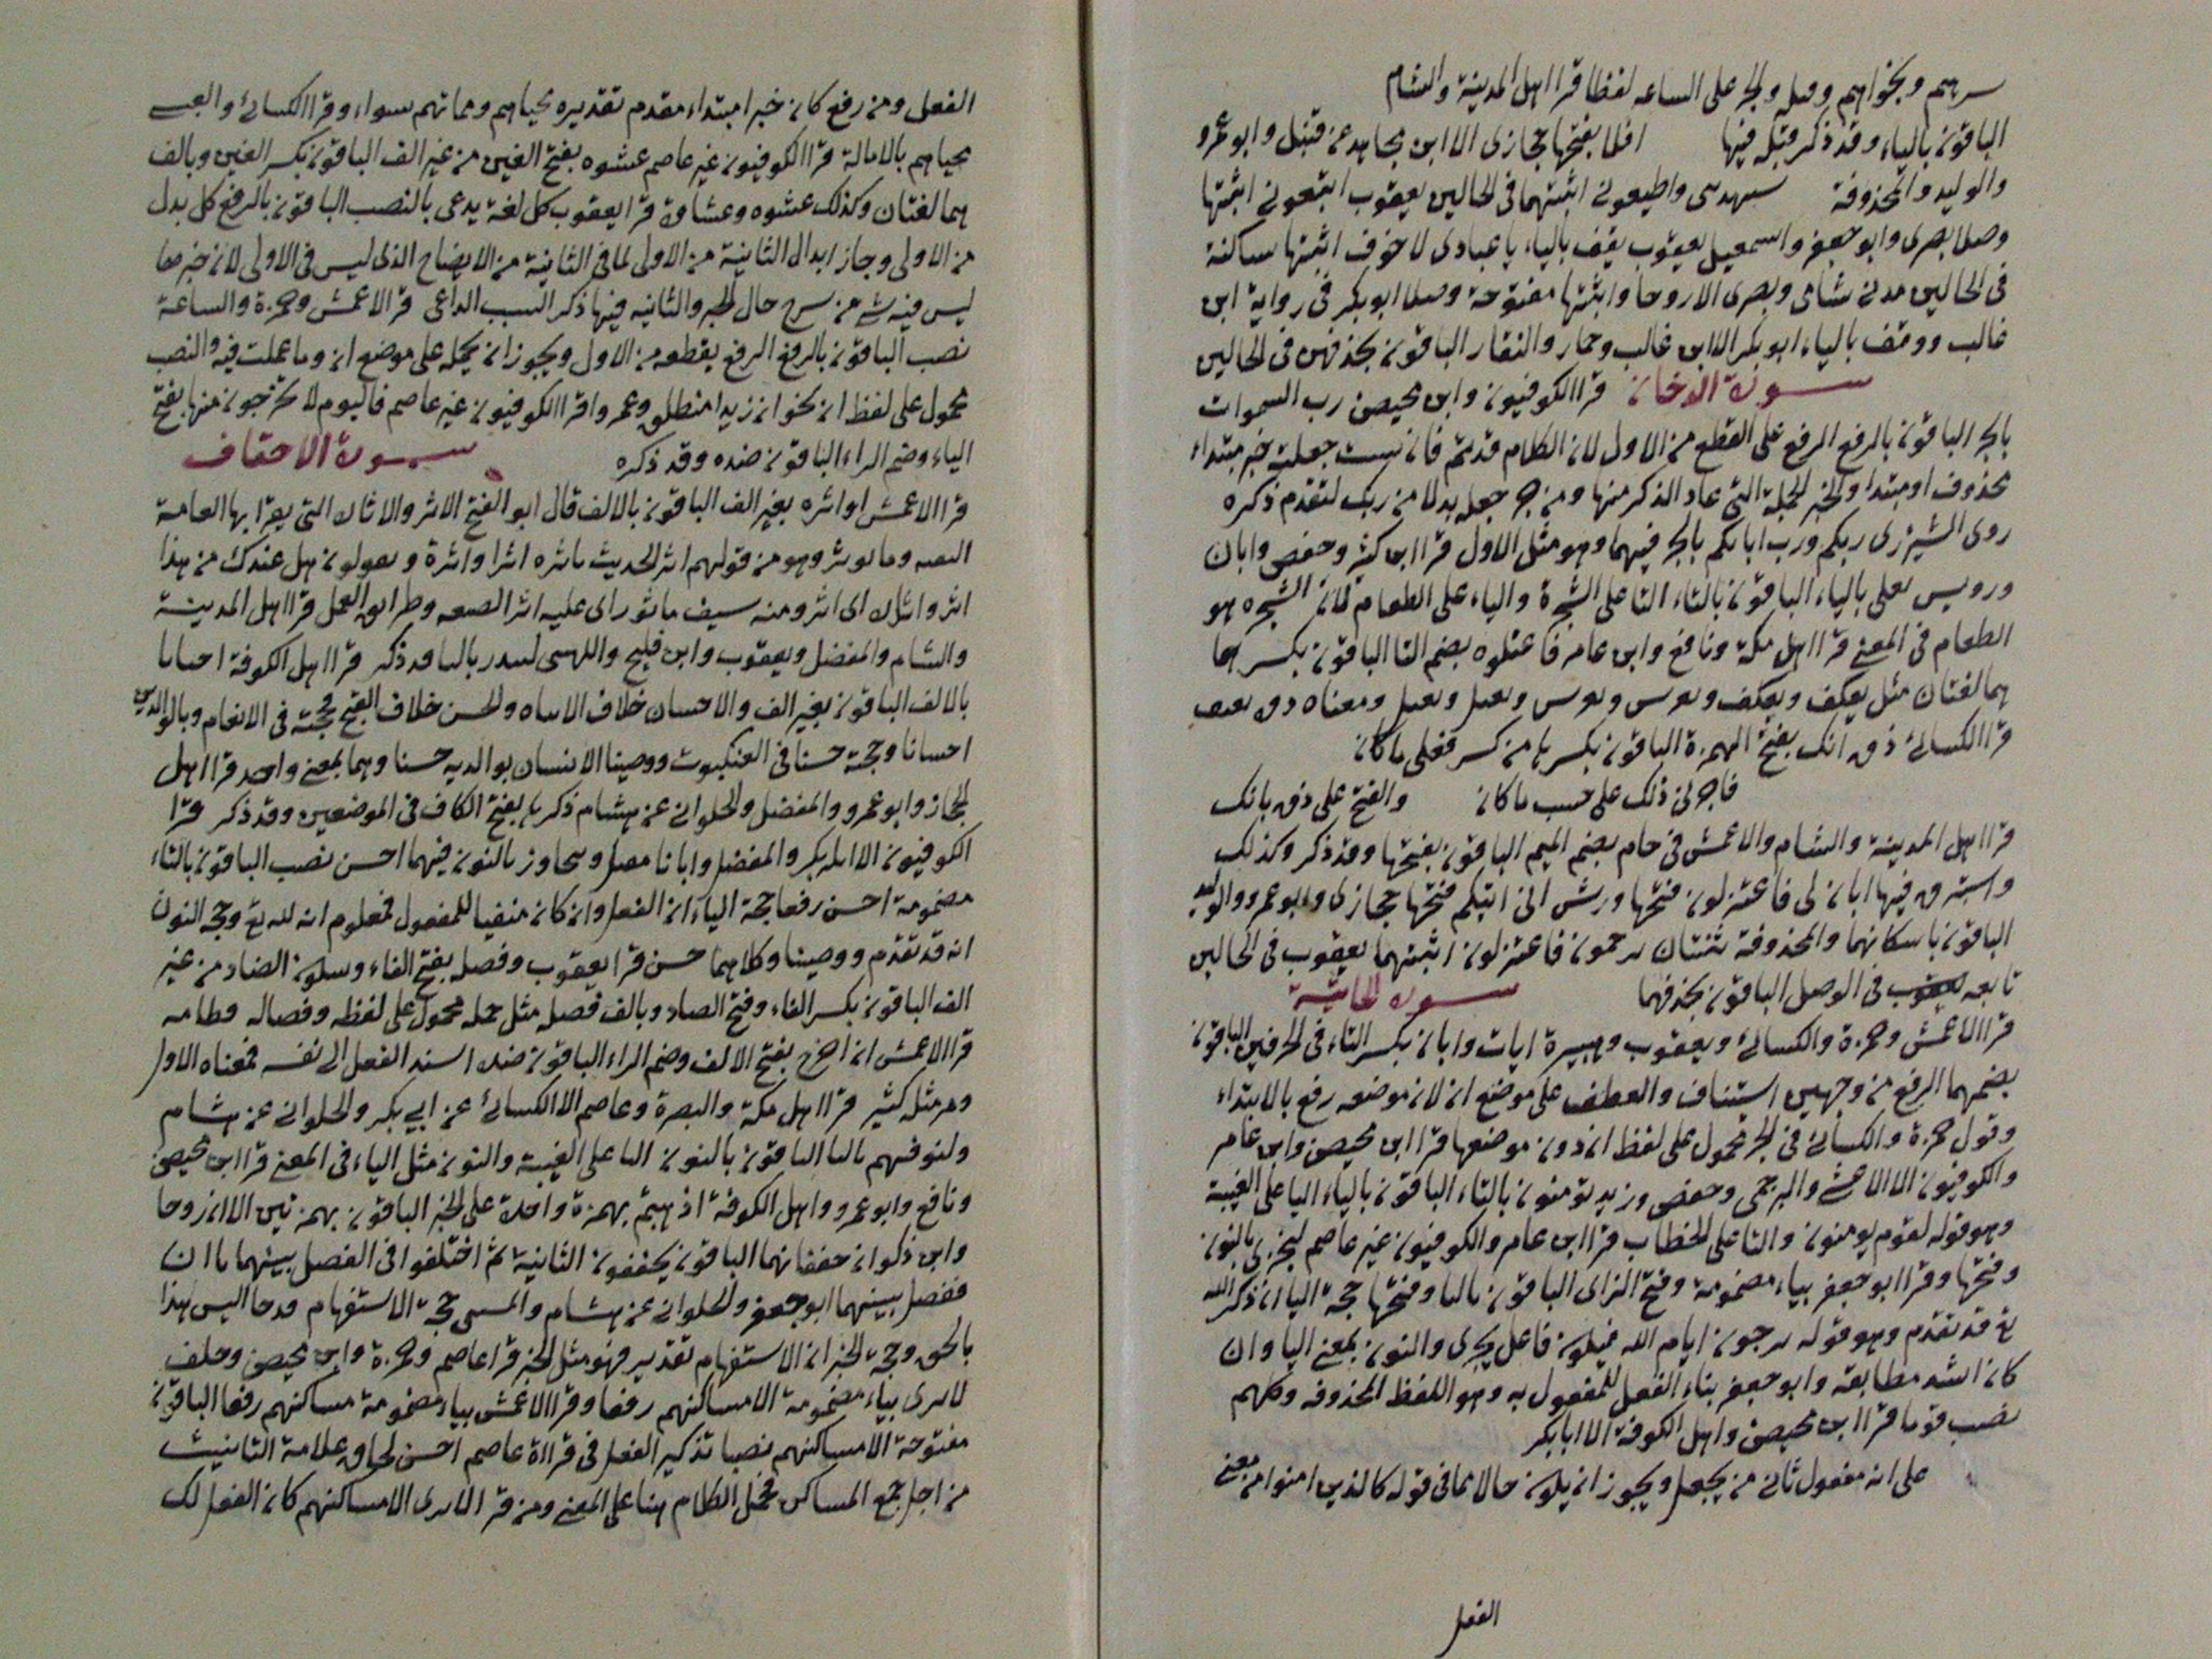 سرهم ونجواهم وقيله والجر على الساعه لفظا قرا اهل المدينة والشام
الباقون بالياء وقد ذكر قبله فيها افلا بفتحها حجازى الا ابن مجاهد عن قنبل وابو عمرو
والوليد والمحذوفة سيهدين واطيعونى اثبتهما فى الحالين يعقوب اتبعونى اثبتها
وصلا بصرى وابو جعفر واسمعيل يعقوب يقف بالياء يا عبادى لا خوف اثبتها ساكنة
فى الحالين مدنى شامى وبصرى الا روحا واثبتها مفتوحة وصلا ابو بكر فى رواية ابن
غالب ووقف بالياء ابو بكر الا ابن غالب وحماد والنقار الباقون بحذفهن فى الحالين
سورة الدخان قرا الكوفيون وابن محيصن رب السموات
بالجر الباقون بالرفع الرفع على القطع من الاول لان الكلام قد تم فان شيت جعلته خبر مبتداء
محذوف او مبتدا والخبر الجملة التى عاد الذكر منها ومن جر جعله بدلا من ربك لتقدم ذكره
روى الشيزرى ربكم ورب ابايكم بالجر فيهما وهو مثل الاول قرا ابن كثير وحفص وابان
ورويس يغلى بالياء الباقون بالتاء التا على الشجرة والياء على الطعام لان الشجره هو
الطعام فى المعنى قرا اهل مكة ونافع وابن عامر فاعتلوه بضم التا الباقون بكسرها
هما لغتان مثل يعكف ويعكف
قرا الكسائى ذق انك بفتح الهمزة الباقون بكسرها من كسر فعلى ما كان
فاجرى ذلك على حسب ما كان والفتح على ذق بانك
قرا اهل المدينة والشام والاعمش فى مقام بضم الميم الباقون بفتحها وقد ذكر وكذلك
واستبرق فيها اان لى فاعتزلون فتحها ورش انى اتيكم فتحها حجازى وابو عمرو والوليد
الباقون باسكانهما والمحذوفة ثنتان ترجمون فاعتزلون اثبتهما يعقوب فى الحالين
تابعه فى الوصل الباقون بحذفهما سورة الجاثية
قرا الاعمش وحمزة والكسائى ويعقوب وهبيرة ايات وابان بكسر التاء فى الحرفين الباقون
بضمهما الرفع من وجهين استئناف والعطف على موضع ان لان موضعه رفع بالابتداء
وقول حمزة والكسائى فى الجر محمول على لفظ ان دون موضعها قرا ابن محيصن وابن عامر
والكوفيون الا الاعشى والبرجمى وحفص وزيد تؤمنون بالتاء الباقون بالياء اليا على الغيبة
وهو قوله لقوم يومنون والتا على الخطاب قرا ابن عامر والكوفيون غير عاصم لنجزى بالنون
وفتحها وقرا ابو جعفر بياء مضمومة وفتح الزاى الباقون باليا وفتحها حجة اليا ان ذكر الله
تع قد تقدم وهو قوله يرجون ايام الله فيكون فاعل يجزى والنون بمعنى اليا وان
كان اشد مطابقه وابو جعفر بناء الفعل للمفعول به وهو اللفظ المحذوفه وكلهم
نصب قوما قرا ابن محيصن واهل الكوفة الا ابابكر
على انه مفعول ثانى من يجعل ويجوز ان يكون حالا مما فى قوله كالذين امنوا من معنى
الفعل
الفعل ومن رفع كان خبر ابتداء مقدم تقديره محياهم ومماتهم سواء وقرا الكسائى والعبسى
محياهم بالامالة قرا الكوفيون غير عاصم غشوه بفتح الغين من غير الف الباقون بكسر الغين وبالف
هما لغتان وكذلك غشوه وغشاوة قرا يعقوب كل لغة يدعى بالنصب الباقون بالرفع كل بدل
من الاولى وجاز ابدال الثانية من الاولى لما فى الثانية من الايضاح الذى ليس فى الاولى لان خبرها
ليس فيه شى من شرح حال الجر والثانيه فيها ذكر السبب الداعى قرا الاعمش وحمزة والساعة
نصب الباقون بالرفع الرفع يقطعه من الاول ويجوز ان يحمله على موضع ان وما عملت فيه والنصب
محمول على لفظ ان نحو ان زيدا منطلق وعمروا قرا الكوفيون غير عاصم فاليوم لا يخرجون منها بفتح
الياء وضم الراء الباقون ضده وقد ذكره سورة الاحقاف
قرا الاعمش او اثره بغير الف الباقون بالالف قال ابو الفتح الاثر والاثاره التى يقرا بها العامة
البقيه وما يوثر وهو من قولهم اثر الحديث ياثره اثرا واثرة ويقولون هل عندك من هذا
اثر واثارة اى اثر ومنه سيف ماثور اى عليه اثر الصنعه وطرايق العمل قرا اهل المدينة
والشام والمفضل ويعقوب وابن فليح واللهبى لتنذر بالتا قد ذكر قرا اهل الكوفة احسانا
بالالف الباقون بغير الف والاحسان خلاف الاساه والحسن خلاف القبح فحجته فى الانعام وبالوالدين
احسانا وحجة حسنا فى العنكبوت ووصينا الانسان بوالديه حسنا وهما بمعنى واحد قرا اهل
الحجاز وابو عمرو والمفضل والحلوانى عن هشام ذكرها بفتح الكاف فى الموضعين وقد ذكر قرا
الكوفيون الا ابا بكر والمفضل وابانا نتقبل ونتجاوز بالنون فيهما احسن نصب الباقون بالتاء
مضمومة احسن رفعا حجة الياء ان الفعل وان كان منفيا للمفعول فمعلوم انه لله تع وحجة النون
انه قد تقدم ووصينا وكلاهما حسن قرا يعقوب وفصله بفتح الفاء وسكون الصاد من غير
الف الباقون بكسر الفاء وفتح الصاد وبالف فصله مثل حمله محمول على لفظه وفصاله
قرا الاعمش ان اخرج بفتح الالف وضم الراء الباقون ضده اسند الفعل الى نفسه فمعناه الاول
ومثله كثير قرا اهل مكة والبصرة وعاصم الا الكسائى عن ابى بكر والحلوانى عن هشام
وليوفيهم باليا الباقون بالنون اليا على الغيبة والنون مثل الياء فى المعنى قرا ابن محيصن
ونافع وابو عمرو واهل الكوفة اذهبتم بهمزة واحدة على الخبر الباقون بهمزتين الا ان روحا
وابن ذكوان حققاهما الباقون يخففون الثانية ثم اختلفوا فى الفصل بينهما بالف
ففصل بينهما ابو جعفر والحلوانى عن هشام حجة الاستفهام قد جا اليس هذا
بالحق وحجة الخبر ان الاستفهام تقدير فهو مثل الخبر قرا عاصم وحمزة وابن محيصن وخلف
لا يرى بياء مضمومة الا مساكنهم رفعا وقرا الاعمش بياء مضمومة مساكنهم رفعا الباقون
مفتوحة الا مساكنهم نصبا تذكير الفعل فى قراة عاصم احسن لحاق علامة التانيث
من اجل جمع المساكن فحمل الكلام هنا على المعنى ومن قرا لا يرى الا مساكنهم كان الفعل لك